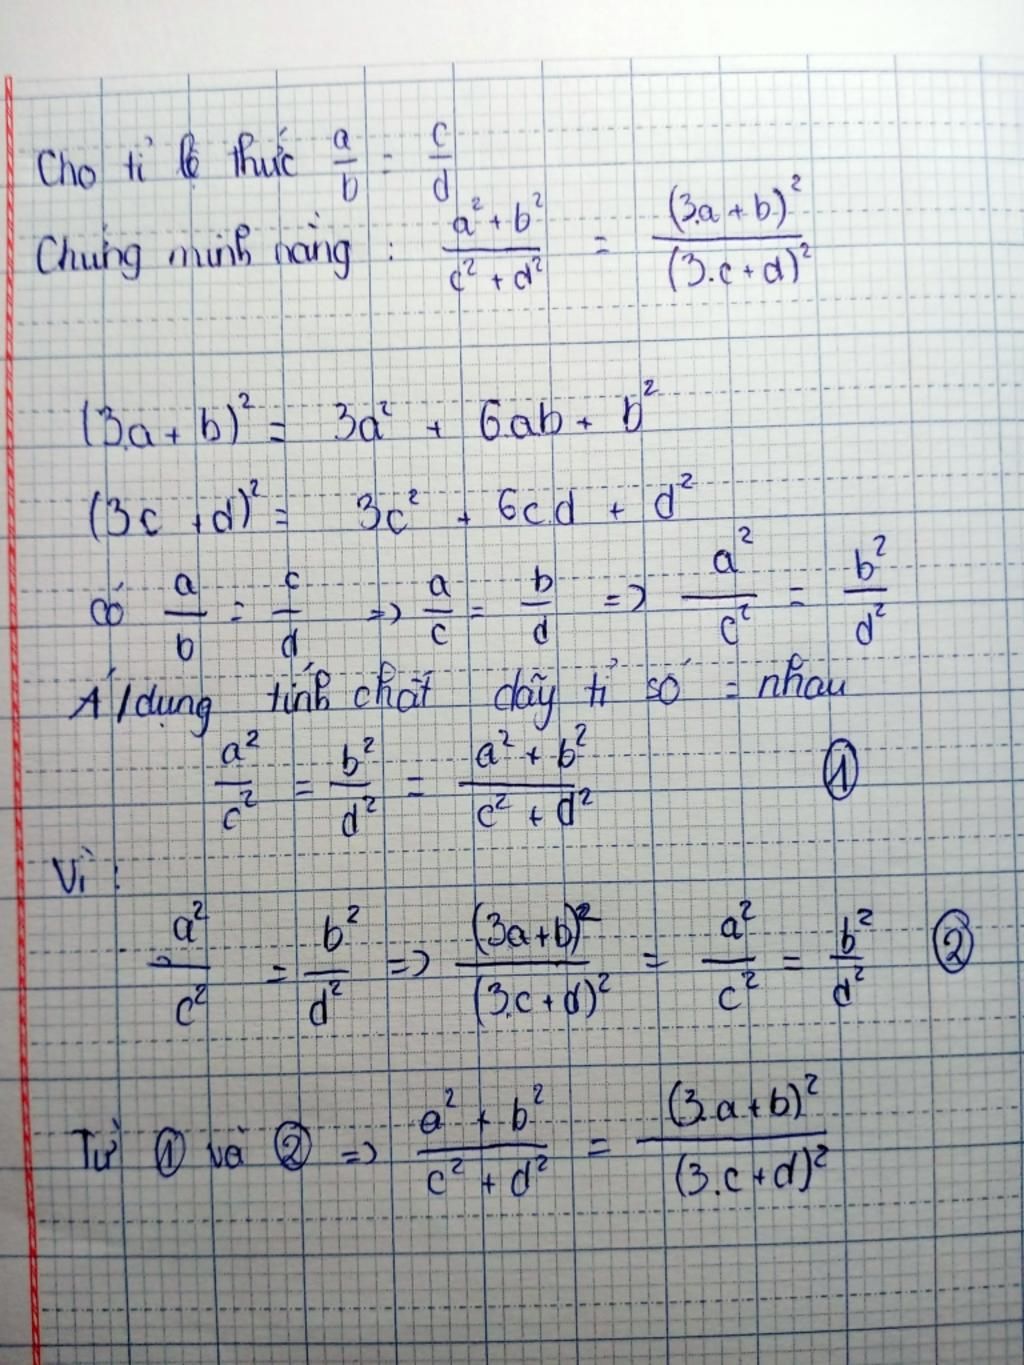 Cho tỉ lệ thức a/b = c/d
Chứng minh rằng : (a² + b²)/(c² + d²) = (3.a + b)²/(3.c + d)²
(3.a + b)² = 3a² + 6.ab + b²
(3c + d)² = 3c² + 6c.d + d²
Có a/b = c/d => a/c = b/d => a²/c² = b²/d²
Á/dụng tính chất dãy tỉ số = nhau
a²/c² = b²/d² = (a² + b²)/(c² + d²) ①
Vì :
a²/c² = b²/d² => (3a+b)²/(3.c+d)² = a²/c² = b²/d² ②
Từ ① và ② => (a² + b²)/(c² + d²) = (3.a+b)²/(3.c+d)²